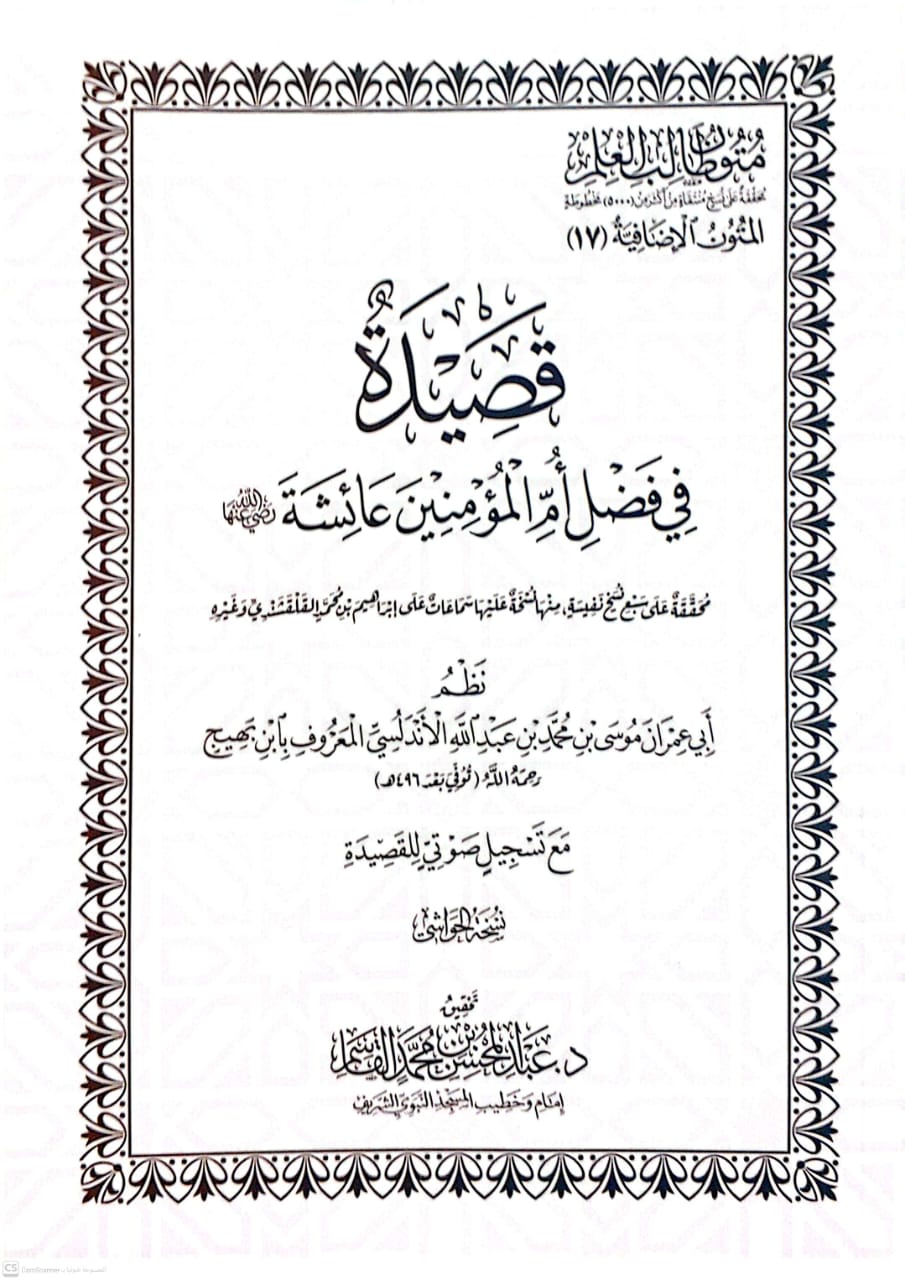 مُتُونُ طَالِبِ الْعِلْمِ
مُحَقَّقَةٌ عَلَى نُسَخٍ مُنْتَقَاةٍ مِنْ أَكْثَرَ مِنْ (٥٠٠٠) مَخْطُوطَةٍ
المُتُونُ الْإِضَافِيَّةُ (١٧)
قَصِيدَةٌ
فِي فَضْلِ أُمِّ الْمُؤْمِنِينَ عَائِشَةَ رَضِيَ اللَّهُ عَنْهَا
مُحَقَّقَةٌ عَلَى سَبْعِ نُسَخٍ نَفِيسَةٍ، مِنْهَا نُسْخَةٌ عَلَيْهَا سَمَاعَاتٌ عَلَى إِبْرَاهِيمَ بْنِ مُحَمَّدٍ القَلْقَشَنْدِيِّ وَغَيْرِهِ
نَظْمُ
أَبِي عِمْرَانَ مُوسَى بْنِ مُحَمَّدِ بْنِ عَبْدِ اللَّهِ الْأَنْدَلُسِيِّ الْمَعْرُوفِ بِابْنِ بَهِيجٍ
رَحِمَهُ اللَّهُ (تُوُفِّيَ بَعْدَ ٤٩٦هـ)
مَعَ تَسْجِيلٍ صَوْتِيٍّ لِلْقَصِيدَةِ
نُسْخَةُ الْحَوَاشِي
تَحْقِيقُ
د. عَبْدِ الْمُحْسِنِ بْنِ مُحَمَّدٍ الْقَاسِمِ
إِمَامِ وَخَطِيبِ الْمَسْجِدِ النَّبَوِيِّ الشَّرِيفِ
CS CamScanner الممسوحة ضوئيا بـ